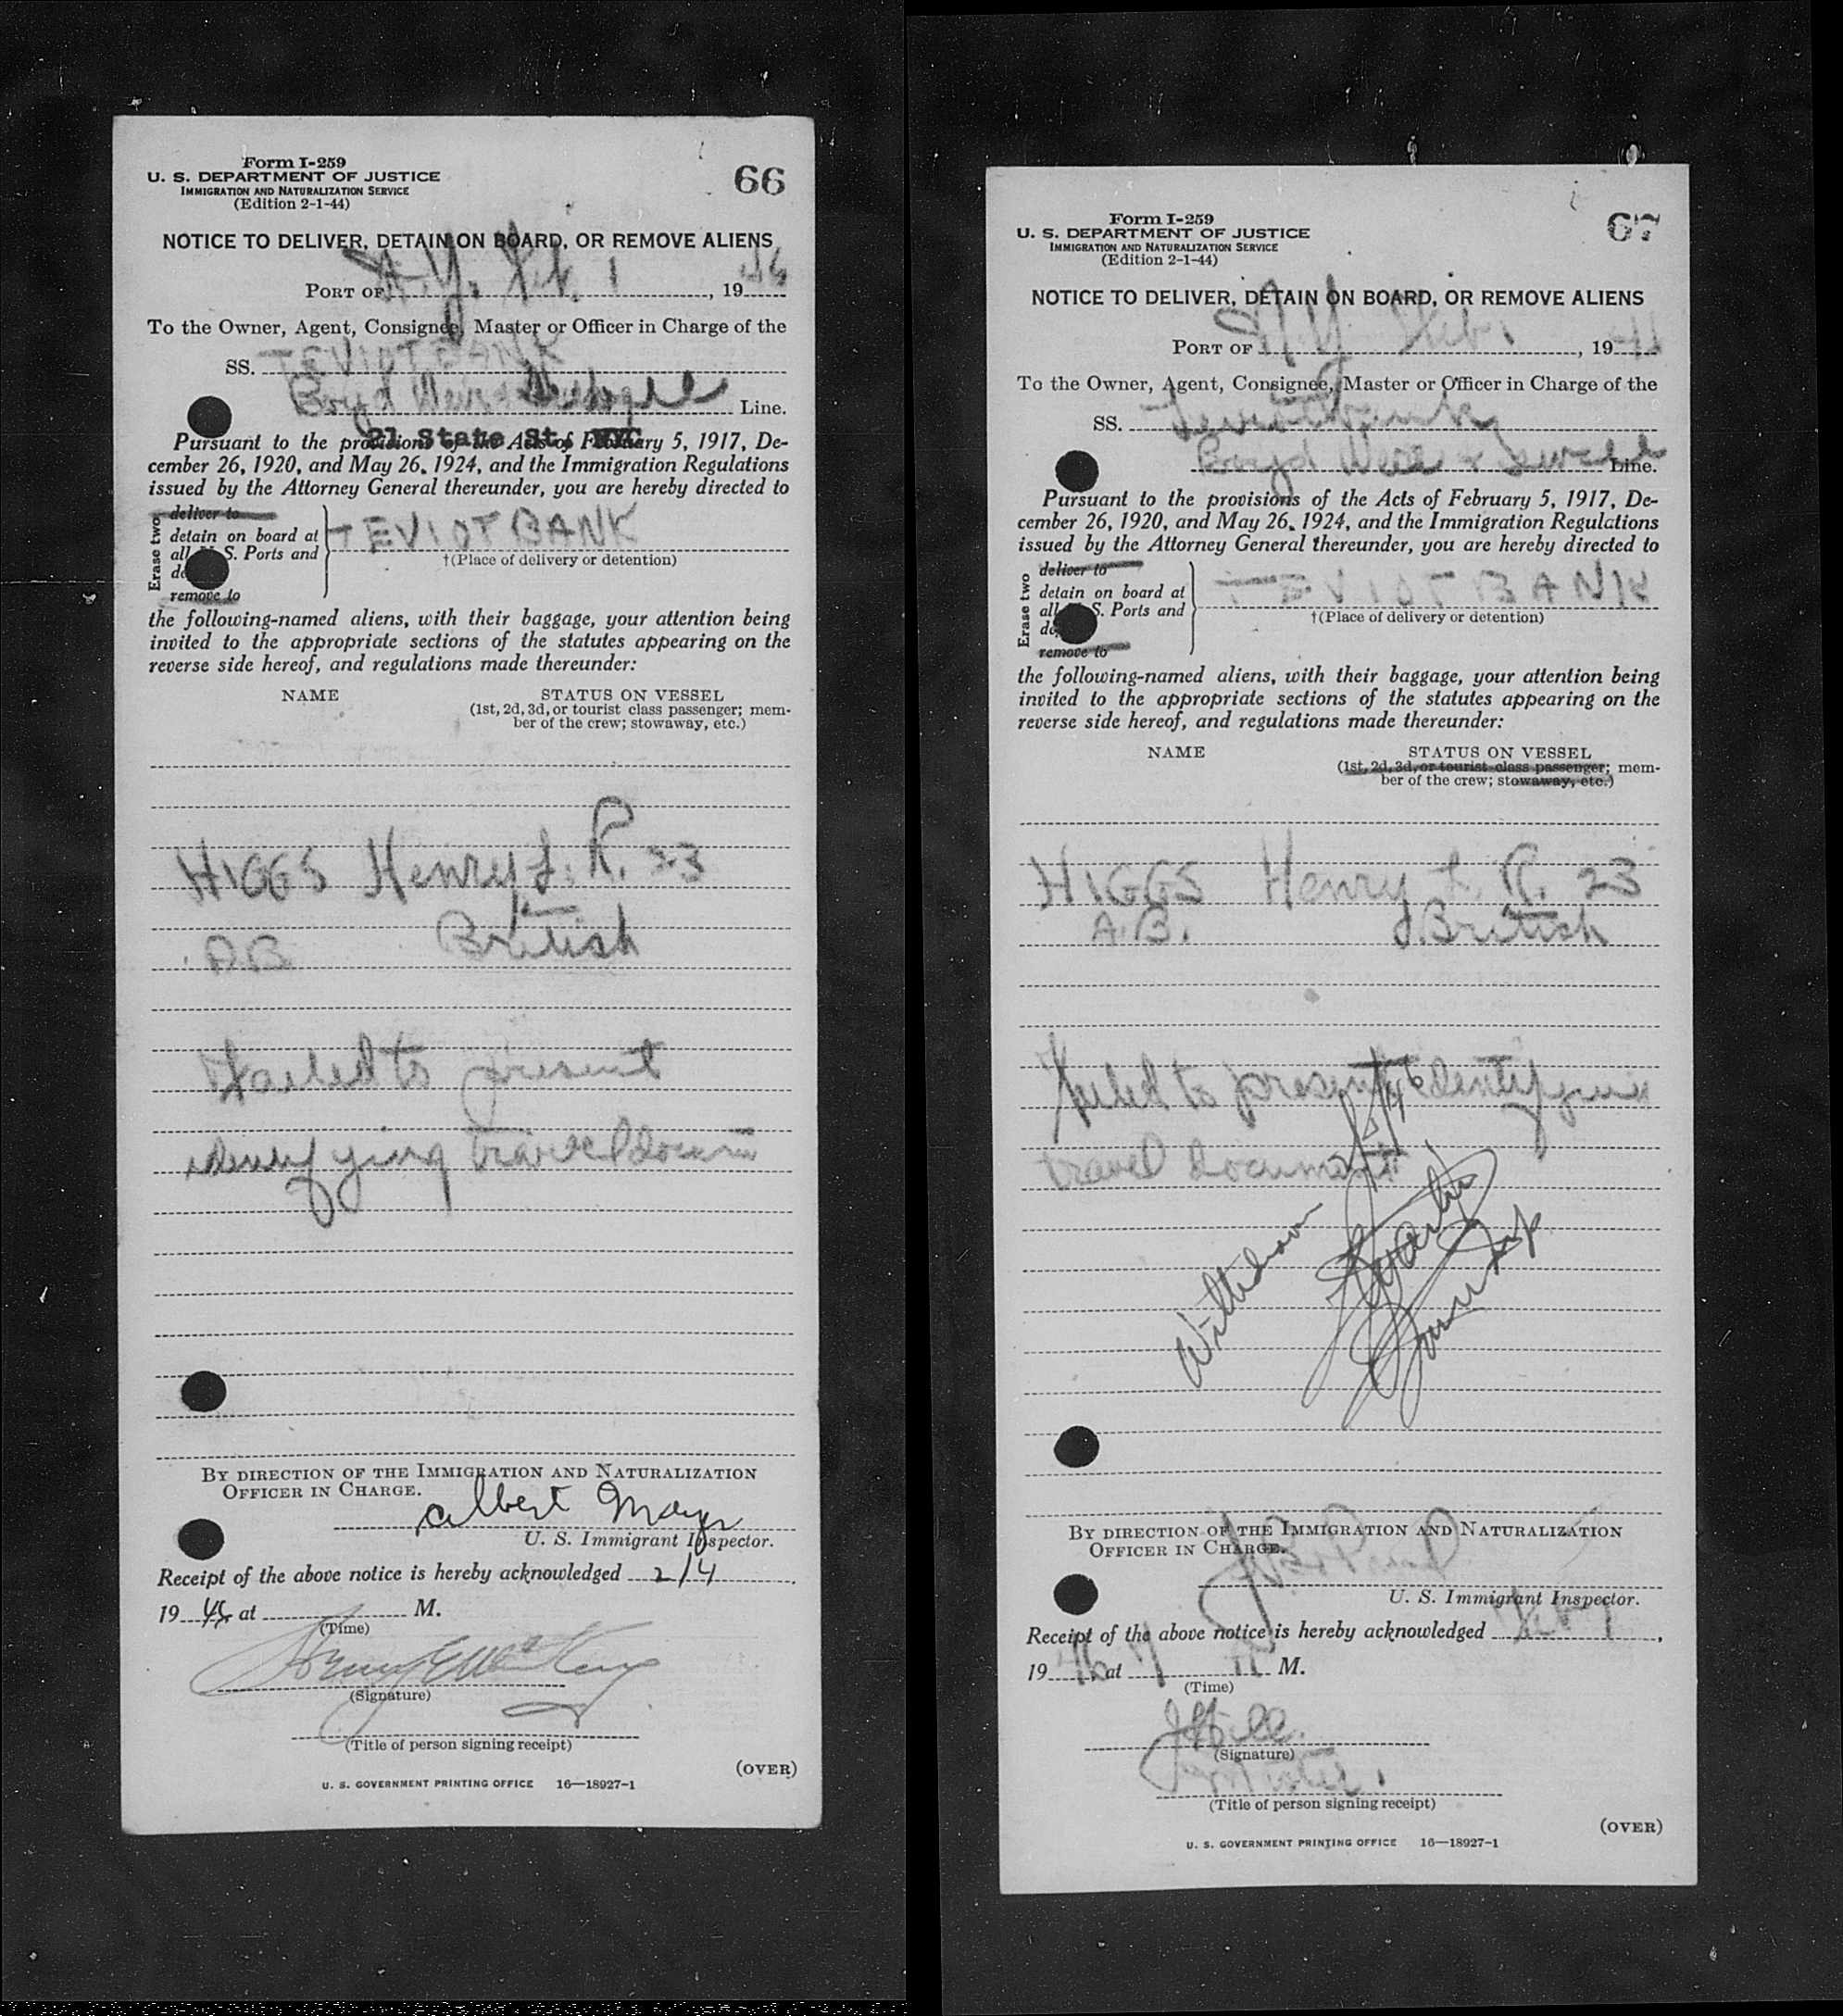 Form I-259
U. S. DEPARTMENT OF JUSTICE
IMMIGRATION AND NATURALIZATION SERVICE
(Edition 2-1-44)
66
NOTICE TO DELIVER, DETAIN ON BOARD, OR REMOVE ALIENS
PORT OF N.Y. Feb. 1, 1946
To the Owner, Agent, Consignee, Master or Officer in Charge of the
SS. TEVIOTBANK
Boyd Weir & Sewell Line.
21 State St. NYC
Pursuant to the provisions of the Acts of February 5, 1917, De-
cember 26, 1920, and May 26, 1924, and the Immigration Regulations
issued by the Attorney General thereunder, you are hereby directed to
Erase two
deliver to
detain on board at
all U. S. Ports and
TEVIOTBANK
†(Place of delivery or detention)
remove to
the following-named aliens, with their baggage, your attention being
invited to the appropriate sections of the statutes appearing on the
reverse side hereof, and regulations made thereunder:
NAME STATUS ON VESSEL
(1st, 2d, 3d, or tourist class passenger; mem-
ber of the crew; stowaway, etc.)
HIGGS Henry L. R. 23
AB British
Failed to present
identifying travel docum
BY DIRECTION OF THE IMMIGRATION AND NATURALIZATION
OFFICER IN CHARGE.
Albert Mayer
U. S. Immigrant Inspector.
Receipt of the above notice is hereby acknowledged 2/4
19 at M.
(Time)
(Signature)
(Title of person signing receipt)
(OVER)
U. S. GOVERNMENT PRINTING OFFICE 16—18927-1
Form I-259
U. S. DEPARTMENT OF JUSTICE
IMMIGRATION AND NATURALIZATION SERVICE
(Edition 2-1-44)
67
NOTICE TO DELIVER, DETAIN ON BOARD, OR REMOVE ALIENS
PORT OF N.Y. Feb. 1, 19
To the Owner, Agent, Consignee, Master or Officer in Charge of the
SS. Teviotbank
Boyd Weir & Sewell Line.
Pursuant to the provisions of the Acts of February 5, 1917, De-
cember 26, 1920, and May 26, 1924, and the Immigration Regulations
issued by the Attorney General thereunder, you are hereby directed to
Erase two
deliver to
detain on board at
all U. S. Ports and
TEVIOTBANK
†(Place of delivery or detention)
remove to
the following-named aliens, with their baggage, your attention being
invited to the appropriate sections of the statutes appearing on the
reverse side hereof, and regulations made thereunder:
NAME STATUS ON VESSEL
(1st, 2d, 3d, or tourist class passenger; mem-
ber of the crew; stowaway, etc.)
HIGGS Henry L. R. 23
A.B. British
Failed to present identifying
travel document
Withdrawn
BY DIRECTION OF THE IMMIGRATION AND NATURALIZATION
OFFICER IN CHARGE.
U. S. Immigrant Inspector.
Receipt of the above notice is hereby acknowledged
1946 at M.
(Time)
(Signature)
Master.
(Title of person signing receipt)
(OVER)
U. S. GOVERNMENT PRINTING OFFICE 16—18927-1